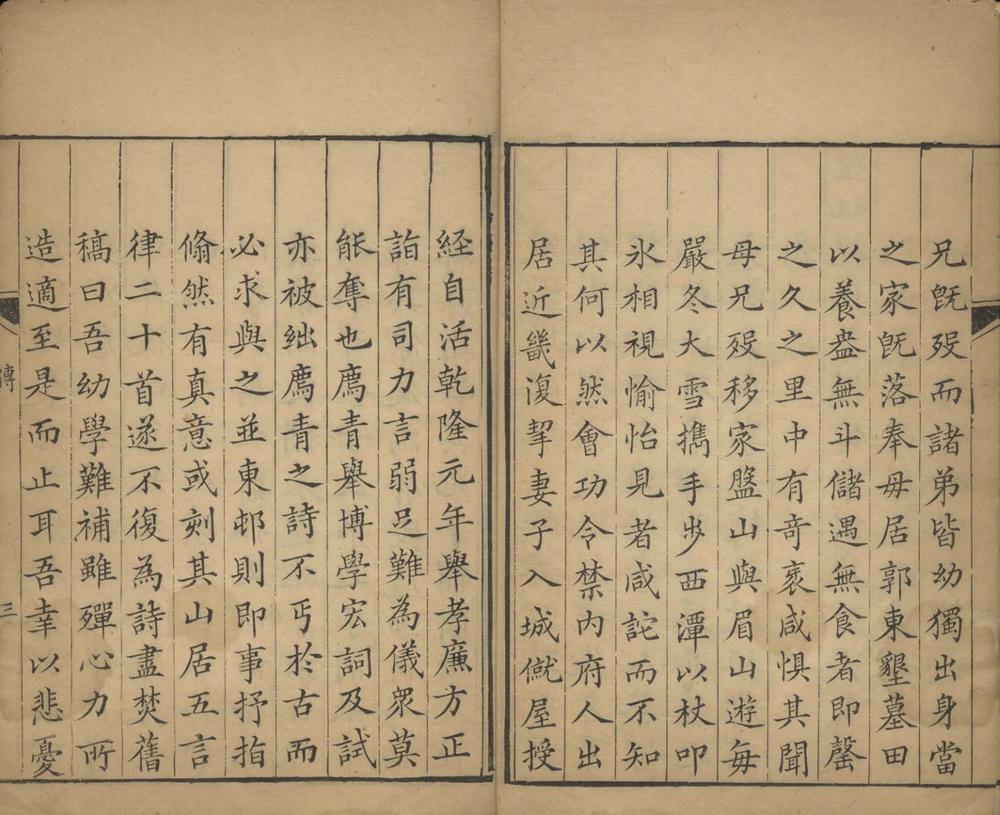 兄旣歿而諸弟皆幼獨出身當
之家旣落奉毋居郭東墾墓田
以養盎無斗儲遇無食者即罄
之久之里中有奇衺咸惧其聞
母兄歿移家盤山與眉山遊每
嚴冬大雪攜手步西潭以杖叩
氷相視愉怡見者咸詫而不知
其何以然會功令禁内府人出
居近畿復挈妻子入城僦屋授
経自活乾隆元年舉孝廉方正
詣有司力言弱足難為儀衆莫
能奪也廌青舉博學宏詞及試
亦被絀廌青之詩不丐於古而
必求與之並東邨則即事抒指
翛然有真意或刻其山居五言
律二十首遂不復為詩盡焚舊
稿曰吾幼學難補雖殫心力所
造適至是而止耳吾幸以悲憂
傳
三